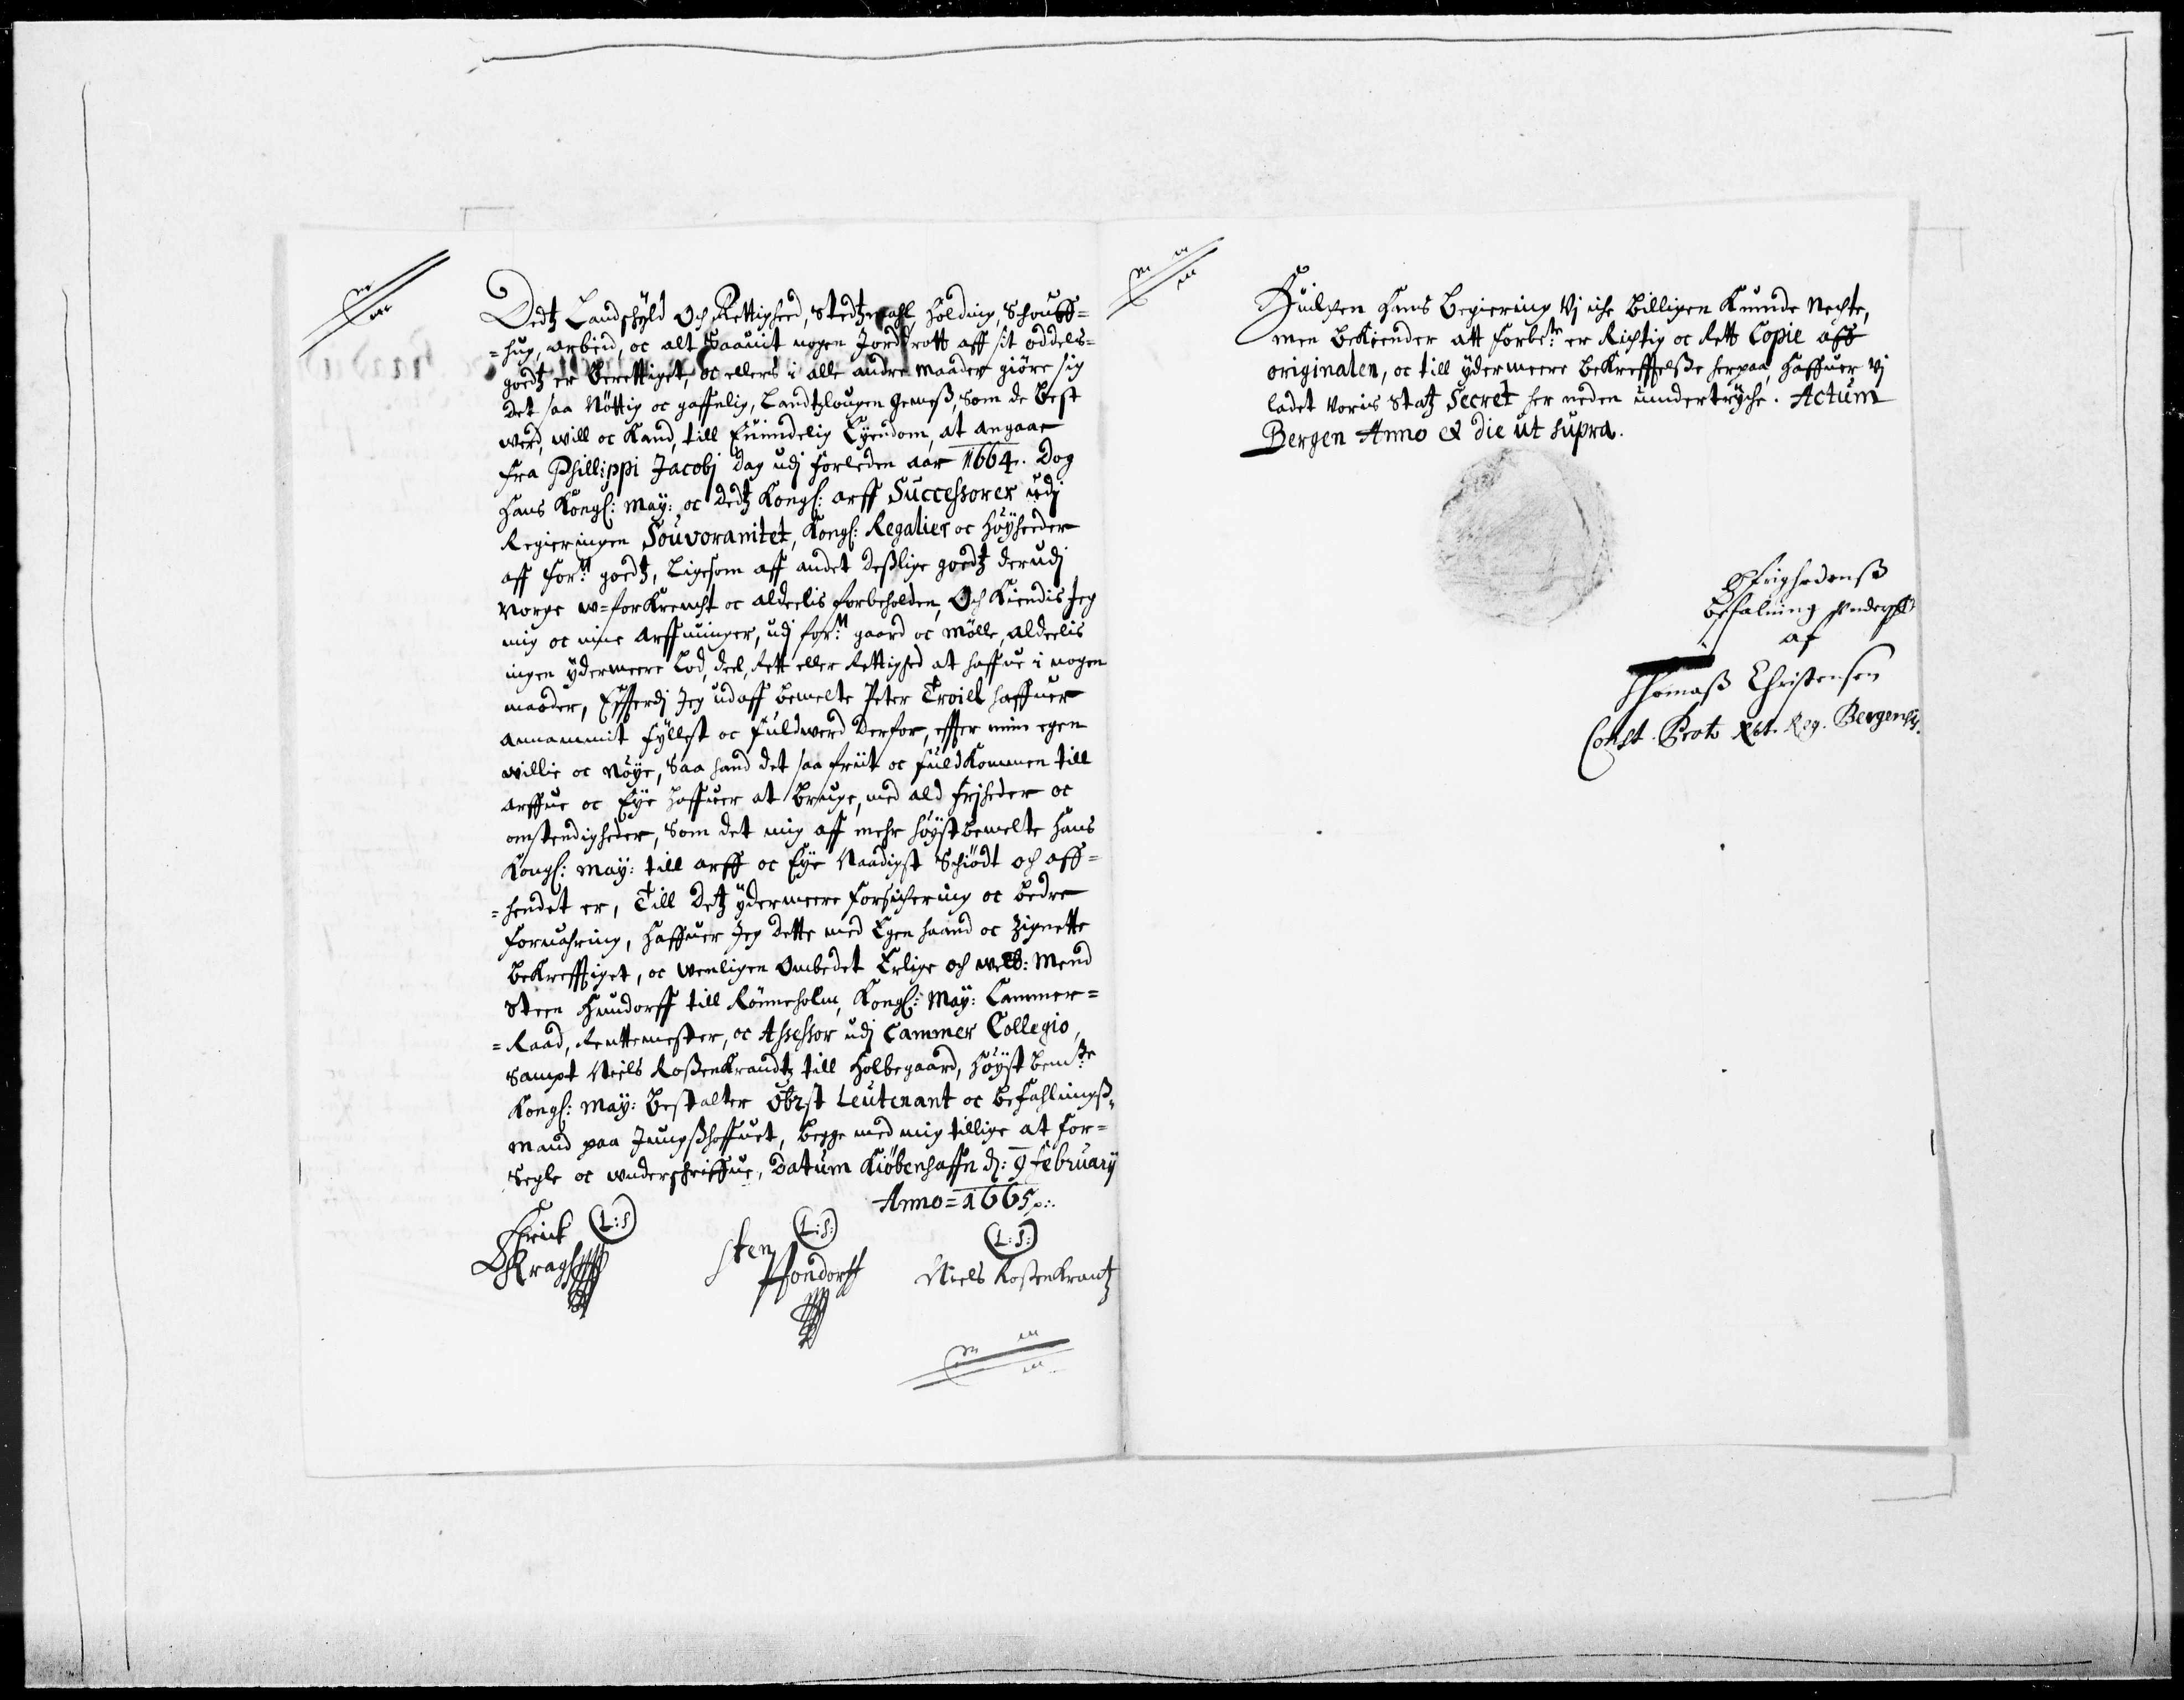 Dedtz Landschÿld Och Rettigheed, Stedtzmahl, holding, Schouff=
=hug, arbeid, oc alt Saauit nogen Jorddrott aff sit oddels=
goedtz er berettiget, oc ellers i alle andre maader giöre sig
det saa Nöttig oc gaffnlig, Landtzlougen gemeß, som de best
werd, will oc Kand, till Euindelig Eyendom, at angaae
fra Phillippi Jacobj dag udj forleden aar 1664. Dog
Hans Kongl: May: oc dedtz Kongl: arff Successorer udj
Regieringen Souvoranitet, Kongl: Regalier oc Höÿheeder
aff forne goedtz, Ligesom aff andet deslige goedtz derudj
Norge w=forkrencht oc aldeelis forbeholden, Och Kiendis Jeg
mig oc mine arffuinger, udj forne gaard oc Mölle, aldeelis
ingen ÿdermeere Lod, deel, Rett eller Rettighed at haffue i nogen
maader, Effterdj Jeg udaff bemelte Peter Troiel haffuer
annammit fÿllest oc fuldwerd derfor, effter min egen
willie oc Nöÿe, Saa hand det saa friit oc fuldkommen till
arffue oc Eÿe haffuer at bruge, med ald frjheder oc
omstendigheder, Som det mig aff mehr höÿstbemelte hans
Kongl: May: till arff oc Eÿe Naadigst Schiödt och aff=
=hendet er, Till detz ÿdermeere forsichering oc bedre
foruahring, haffuer Jeg dette med Egen haand oc Zignette
bekrefftiget, oc wenligen ombedet Erlige och welb: Mend
Steen Hundorff till Rönneholm, Kongl: May: Cammer=
=Raad, Renttemester, oc Assessor udj Cammer Collegio,
Sampt Niels Roßenkrandtz till Holbegaard, höÿst bemte
Kongl: May: Bestalter Obrst Leutenant oc befahlningß
mand paa Jungßhoffuet, begge med mig tillige at for=
Segle oc underschriffue, Datum Kiöbenhaffn d: 9 february
Anno=1665 p:.
Erick (L:S)
Kragh
Sten (L:S:)
Hondorff
(L:S:)
Niels Roßenkrantz
Huilchen hans begiering Vj iche billigen Kunde Negte,
men bekiender att forbete er Rigtig oc Rett Copie aff
originalen, oc till ÿdermeere bekrefftelße herpaa, haffuer Vj
ladet Voris Statz Secret her neden undertryche. Actum
Bergen Anno & die ut supra.
Effter
befalning
af
Thomaß Christensen
Const. Proto Not. Reg. Bergensis.